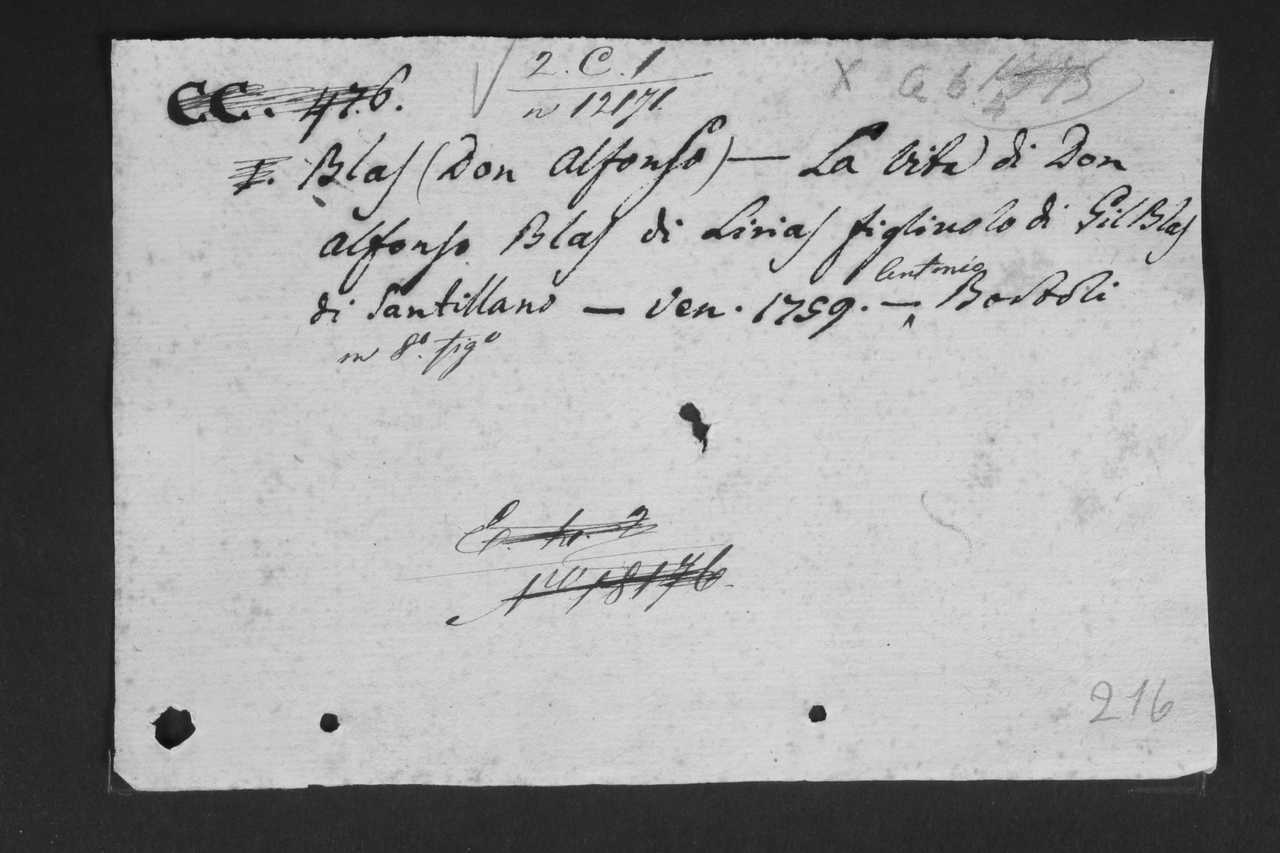 2. C. 1
CC. 476.
n 12171.
X
I. Blas (Don Alfonso) — La Vita di Don
Alfonso Blas di Lirias figliuolo di Gil Blas
di Santillano — Ven. 1759. — Antonio Bortoli
in 8.º fig.º
N.º 18176.
216